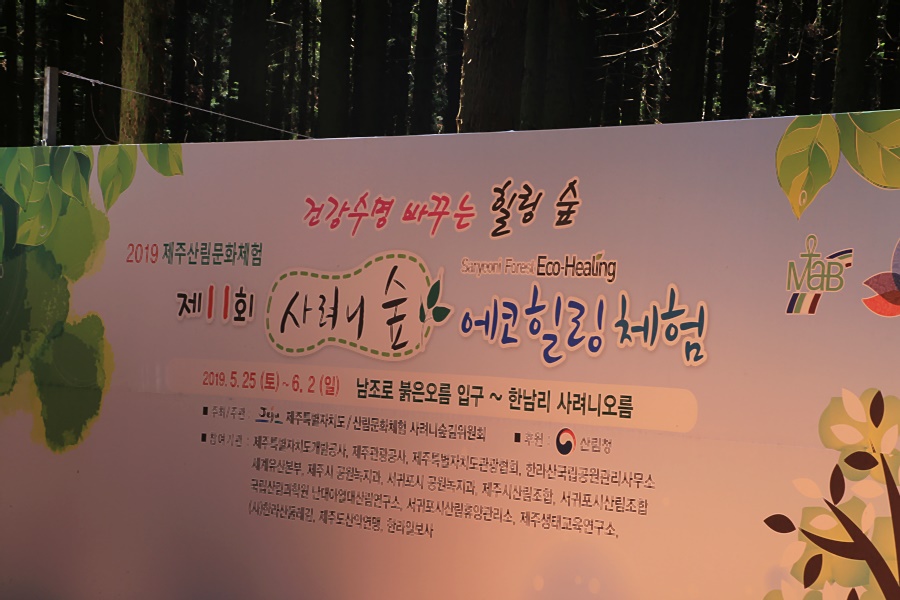 건강수명 바꾸는 힐링 숲
2019 제주산림문화체험
Saryeoni Forest Eco-Healing
제11회 사려니 숲 에코힐링 체험
MaB
2019. 5. 25 (토) ~ 6. 2 (일) 남조로 붉은오름 입구 ~ 한남리 사려니오름
■ 주최/주관 : 제주특별자치도/산림문화체험 사려니숲길위원회 ■ 후원 : 산림청
■ 참여기관 : 제주특별자치도개발공사, 제주관광공사, 제주특별자치도관광협회, 한라산국립공원관리사무소
세계유산본부, 제주시 공원녹지과, 서귀포시 공원녹지과, 제주시산림조합, 서귀포시산림조합
국립산림과학원 난대아열대산림연구소, 서귀포시산림휴양관리소, 제주생태교육연구소,
(사)한라산둘레길, 제주도산악연맹, 한라일보사